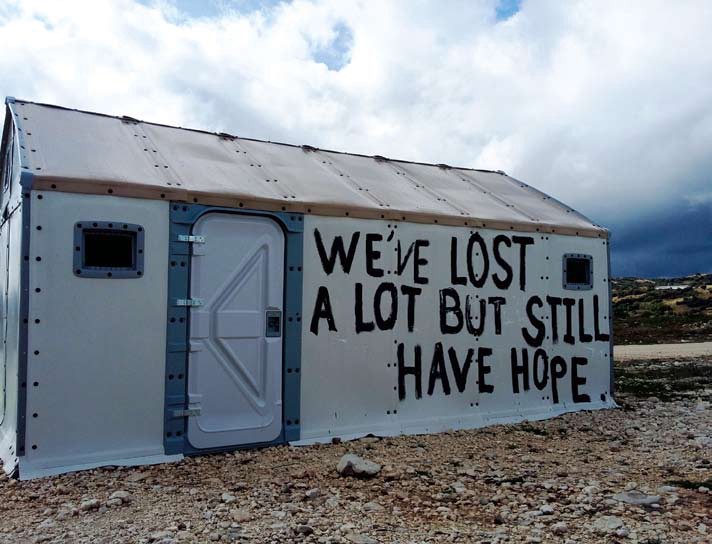 WE'VE LOST
A LOT BUT STILL
HAVE HOPE.